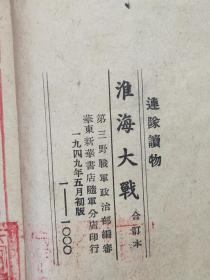 連隊讀物
淮海大戰 合訂本
第三野戰軍政治部編審
華東新華書店隨軍分店印行
一九四九年五月初版
1——1000